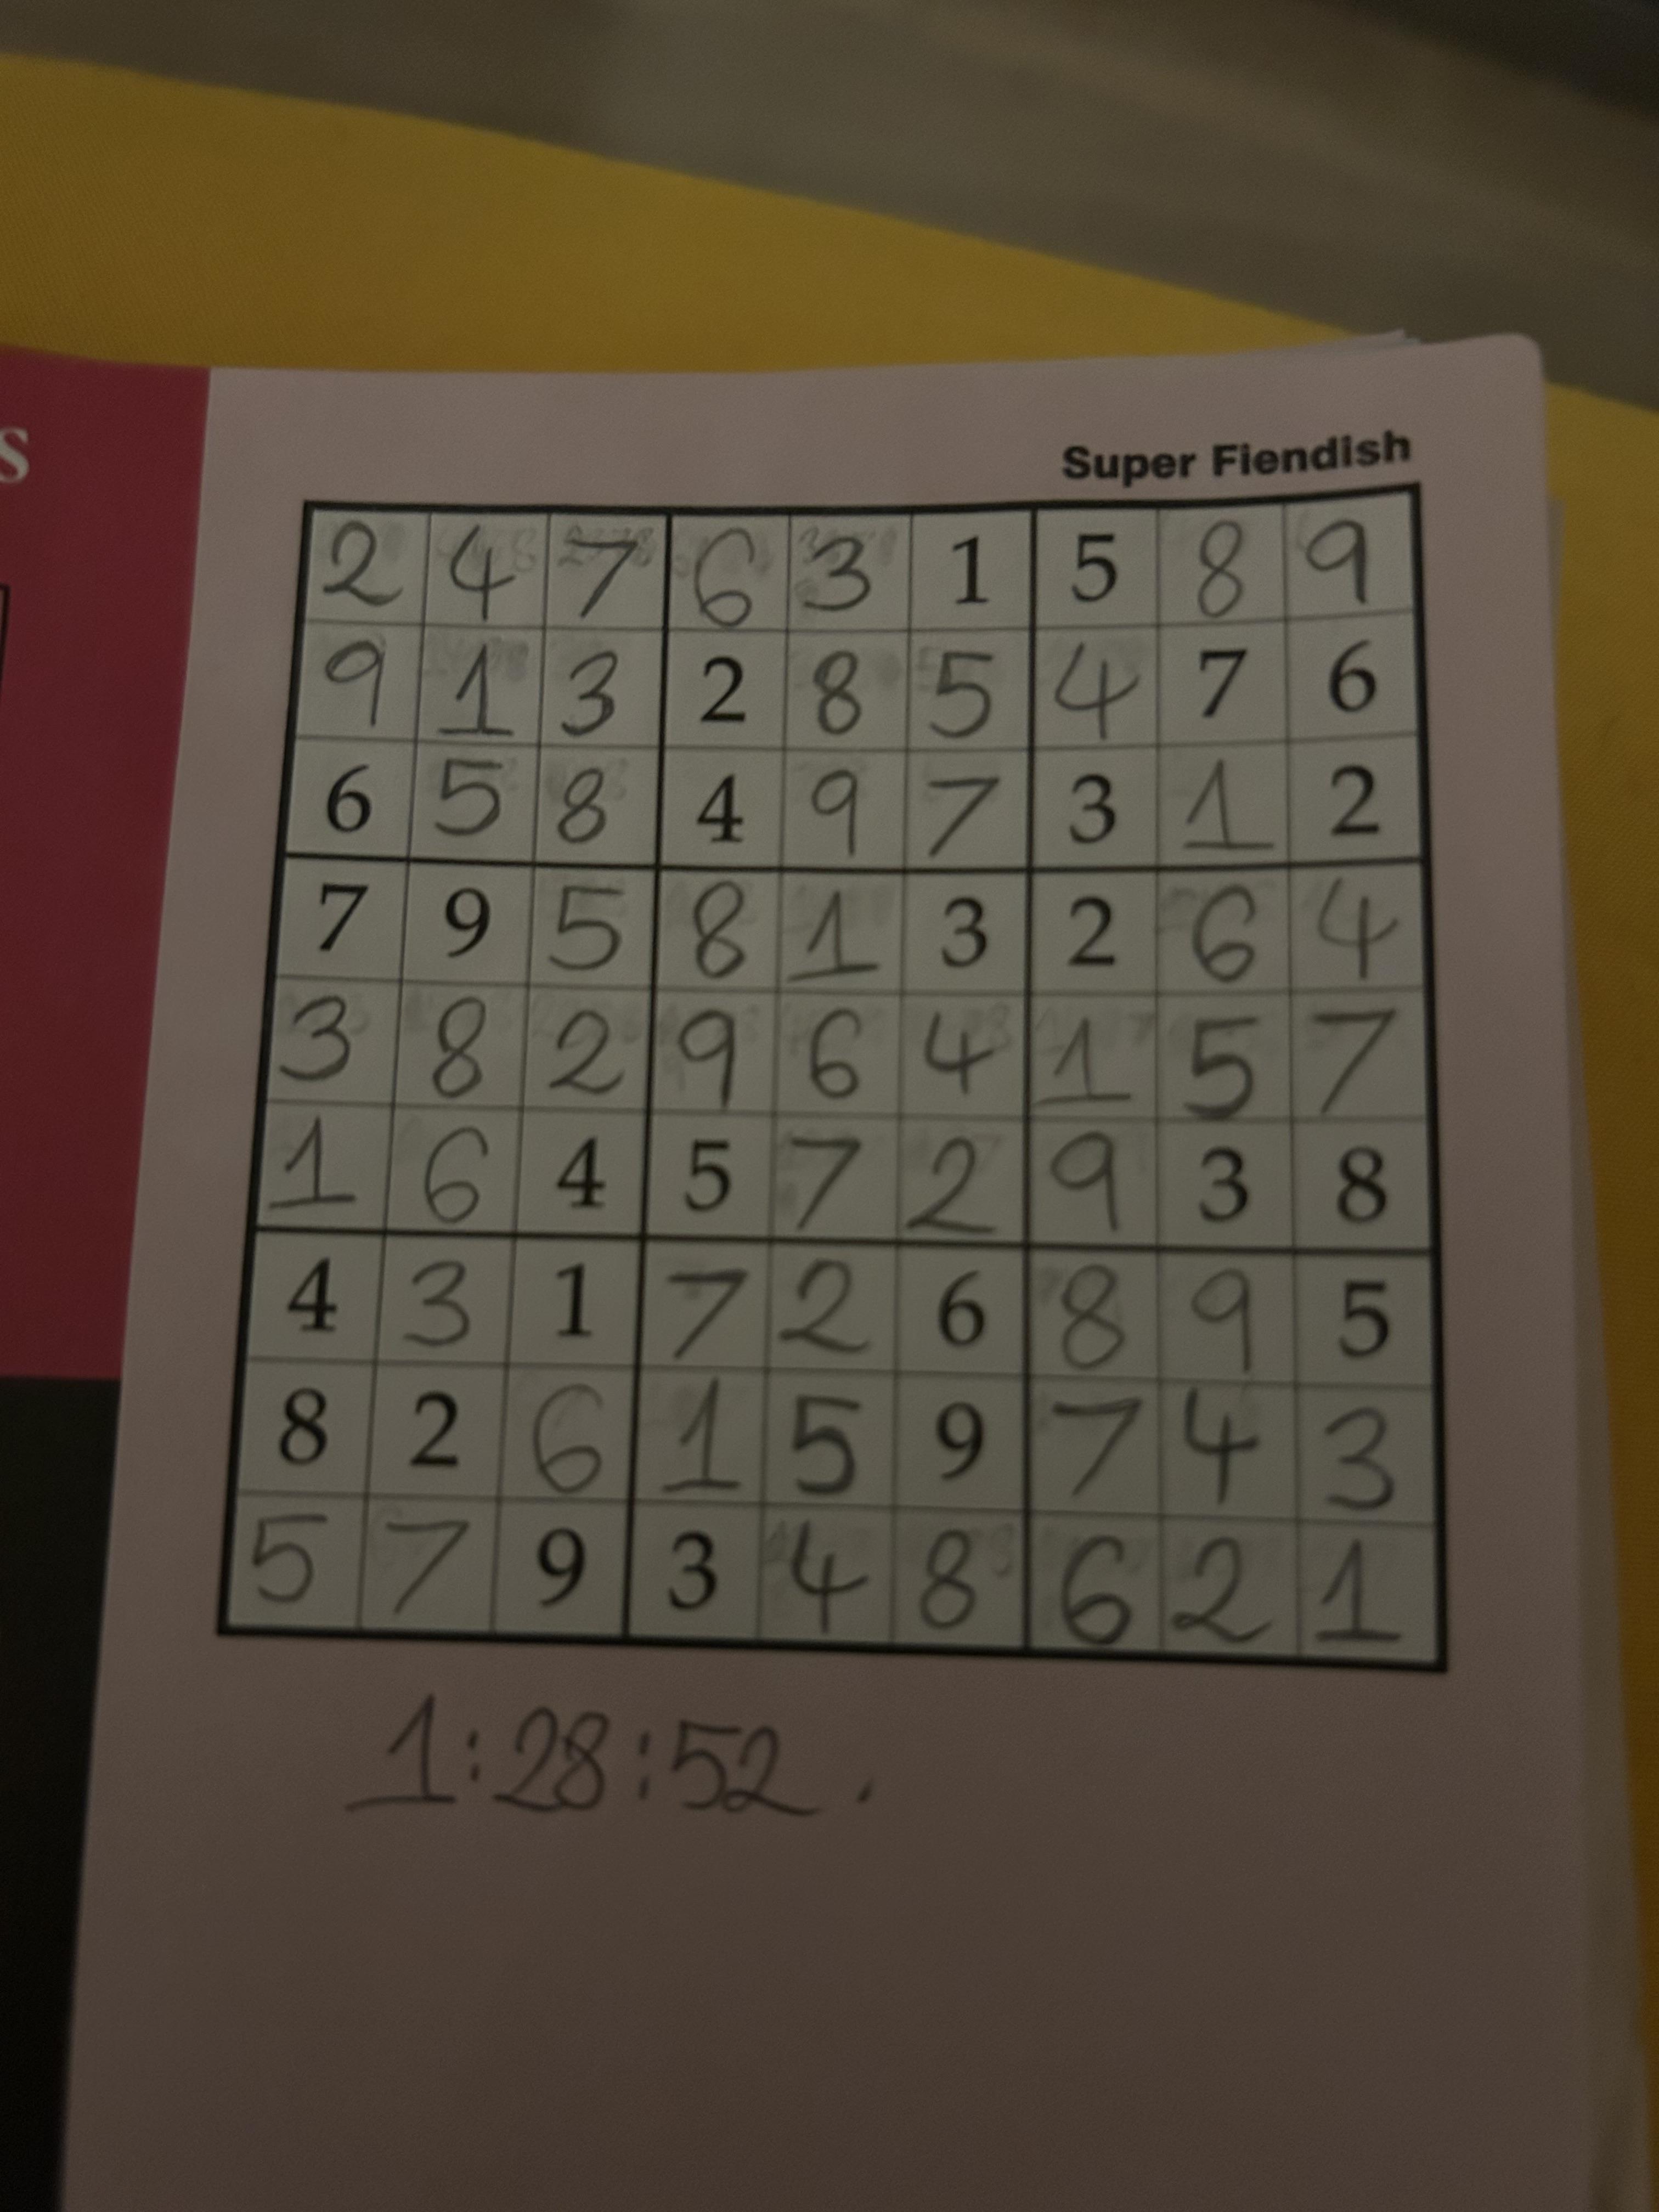 s
Super Fiendish
2 4 7 6 3 1 5 8 9
9 1 3 2 8 5 4 7 6
6 5 8 4 9 7 3 1 2
7 9 5 8 1 3 2 6 4
3 8 2 9 6 4 1 5 7
1 6 4 5 7 2 9 3 8
4 3 1 7 2 6 8 9 5
8 2 6 1 5 9 7 4 3
5 7 9 3 4 8 6 2 1
1:28:52.